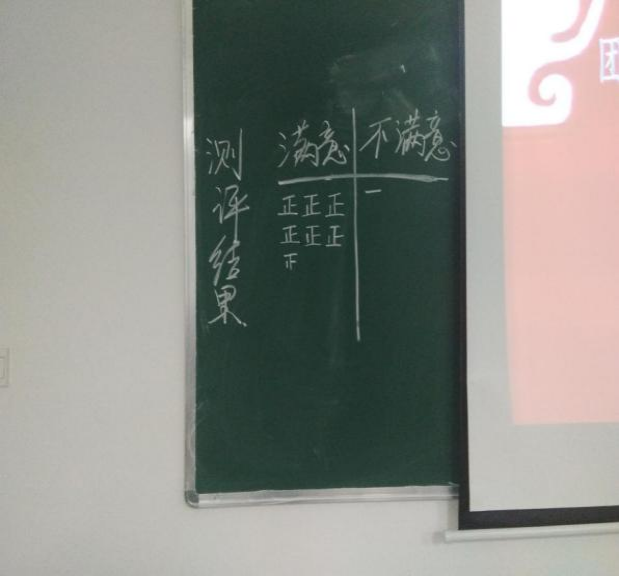 测评结果
满意 不满意
正正正 一
正正正